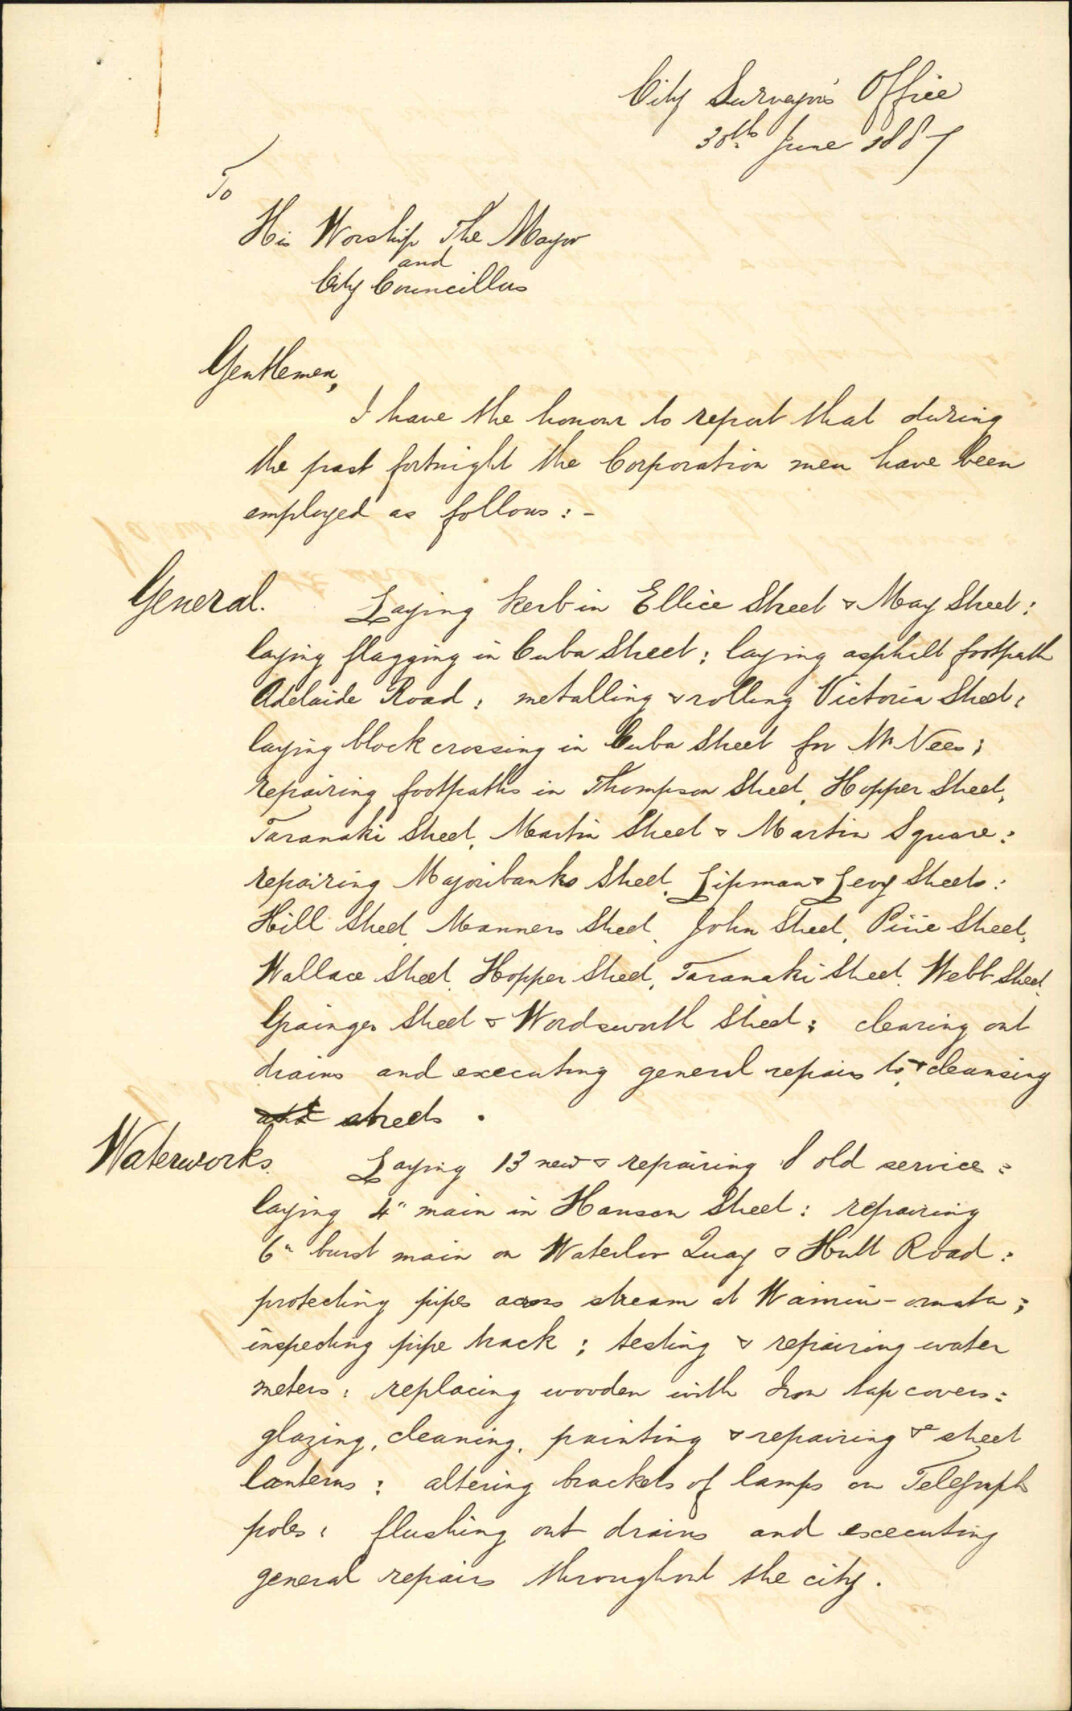 City Surveyor's Office
30th June 1887
To
His Worship The Mayor
and
City Councillors
Gentlemen,
I have the honour to report that during
the past fortnight the Corporation men have been
employed as follows: -
General. Laying kerb in Ellice Street & May Street:
laying flagging in Cuba Street; laying asphalt footpath
Adelaide Road; metalling & rolling Victoria Street;
laying block crossing in Cuba Street for Mr Nees;
repairing footpaths in Thompson Street, Hopper Street,
Taranaki Street, Martin Street & Martin Square:
repairing Majoribanks Street, Lipman & Levy Streets:
Hill Street, Manners Street, John Street, Pirie Street,
Wallace Street, Hopper Street, Taranaki Street, Webb Street,
Grainger Street & Wordsworth Street; clearing out
drains and executing general repairs to & cleansing
streets.
Waterworks. Laying 13 new & repairing 8 old service:
laying 4" main in Hanson Street: repairing
6" burst main on Waterloo Quay & Hutt Road:
protecting pipes across stream at Wainui-omata;
inspecting pipe track; testing & repairing water
meters; replacing wooden with Iron tap covers:
glazing, cleaning, painting & repairing street
lanterns; altering brackets of lamps on Telegraph
poles; flushing out drains and executing
general repairs throughout the city.